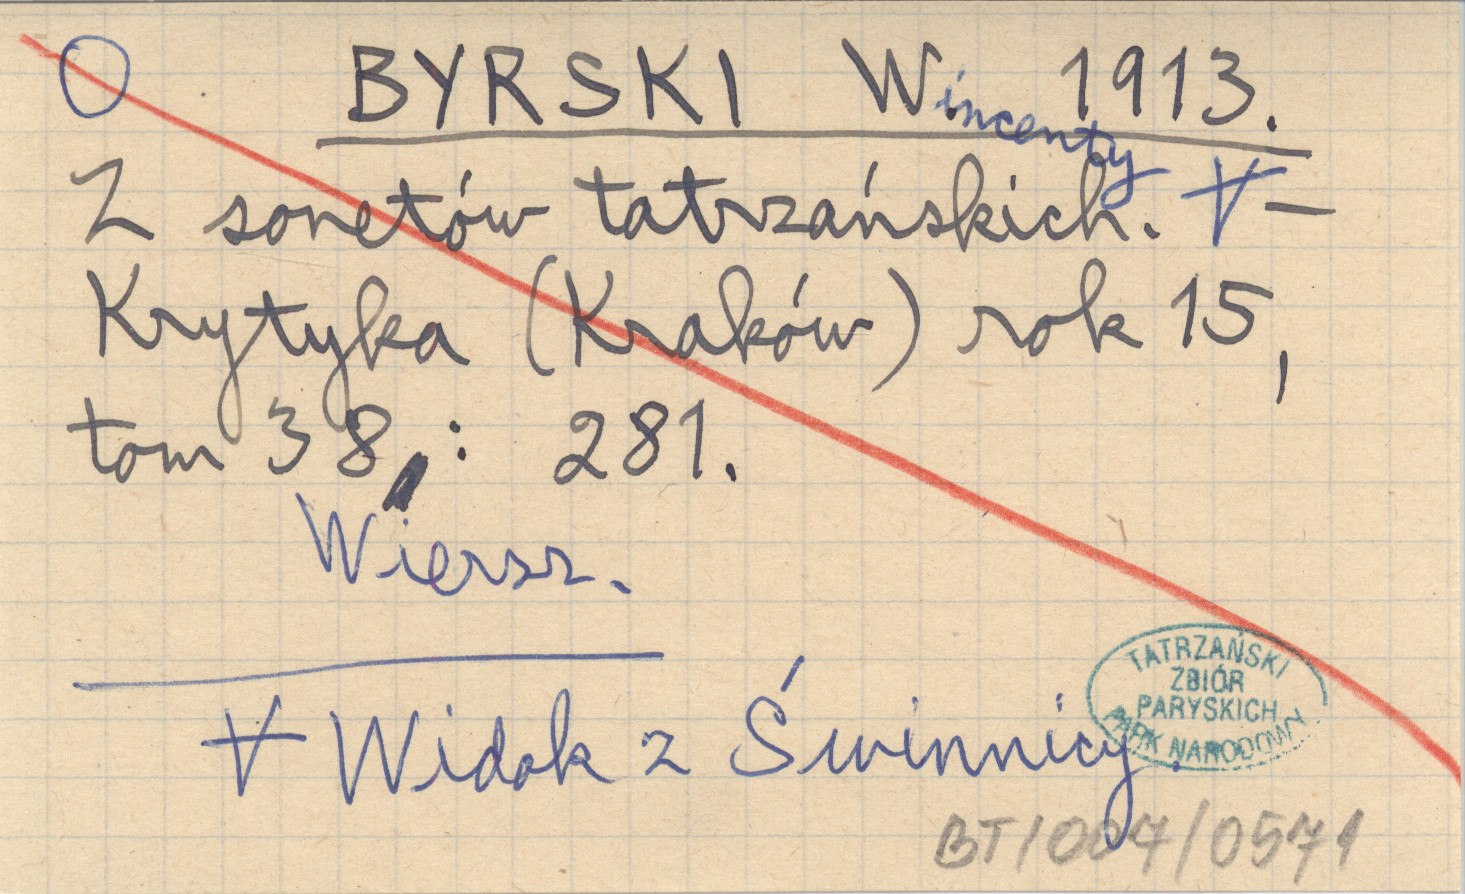 O BYRSKI Wincenty 1913.
Z sonetów tatrzańskich. V —
Krytyka (Kraków) rok 15,
tom 38,: 281.
Wiersz.
V Widok z Świnnicy.
TATRZAŃSKI
ZBIÓR
PARYSKICH
PARK NARODOWY
BT/007/0571